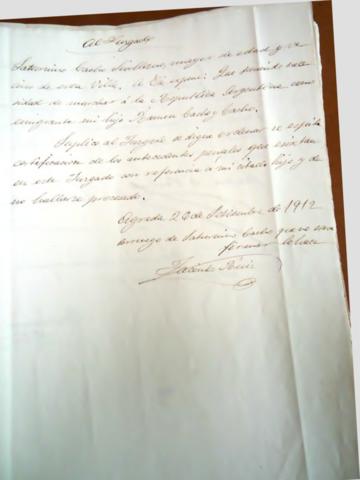 Al Juzgado
Saturnino Calvo Scullero, mayor de edad y ve-
cino de esta Villa, á Vd expone: Que teniendo nece-
sidad de marchar á la Republica Argentina como
emigrante mi hijo Roman Calvo y Calvo.
Suplica al Juzgado se digne ordenar se expida
certificacion de los antecedentes penales que existan
en este Juzgado con referencia á mi citado hijo y de
no hallarse procesado.
Agreda 20 de Setiembre de 1912
A ruego de Saturnino Calvo que no sabe
firmar lo hace
Ruiz